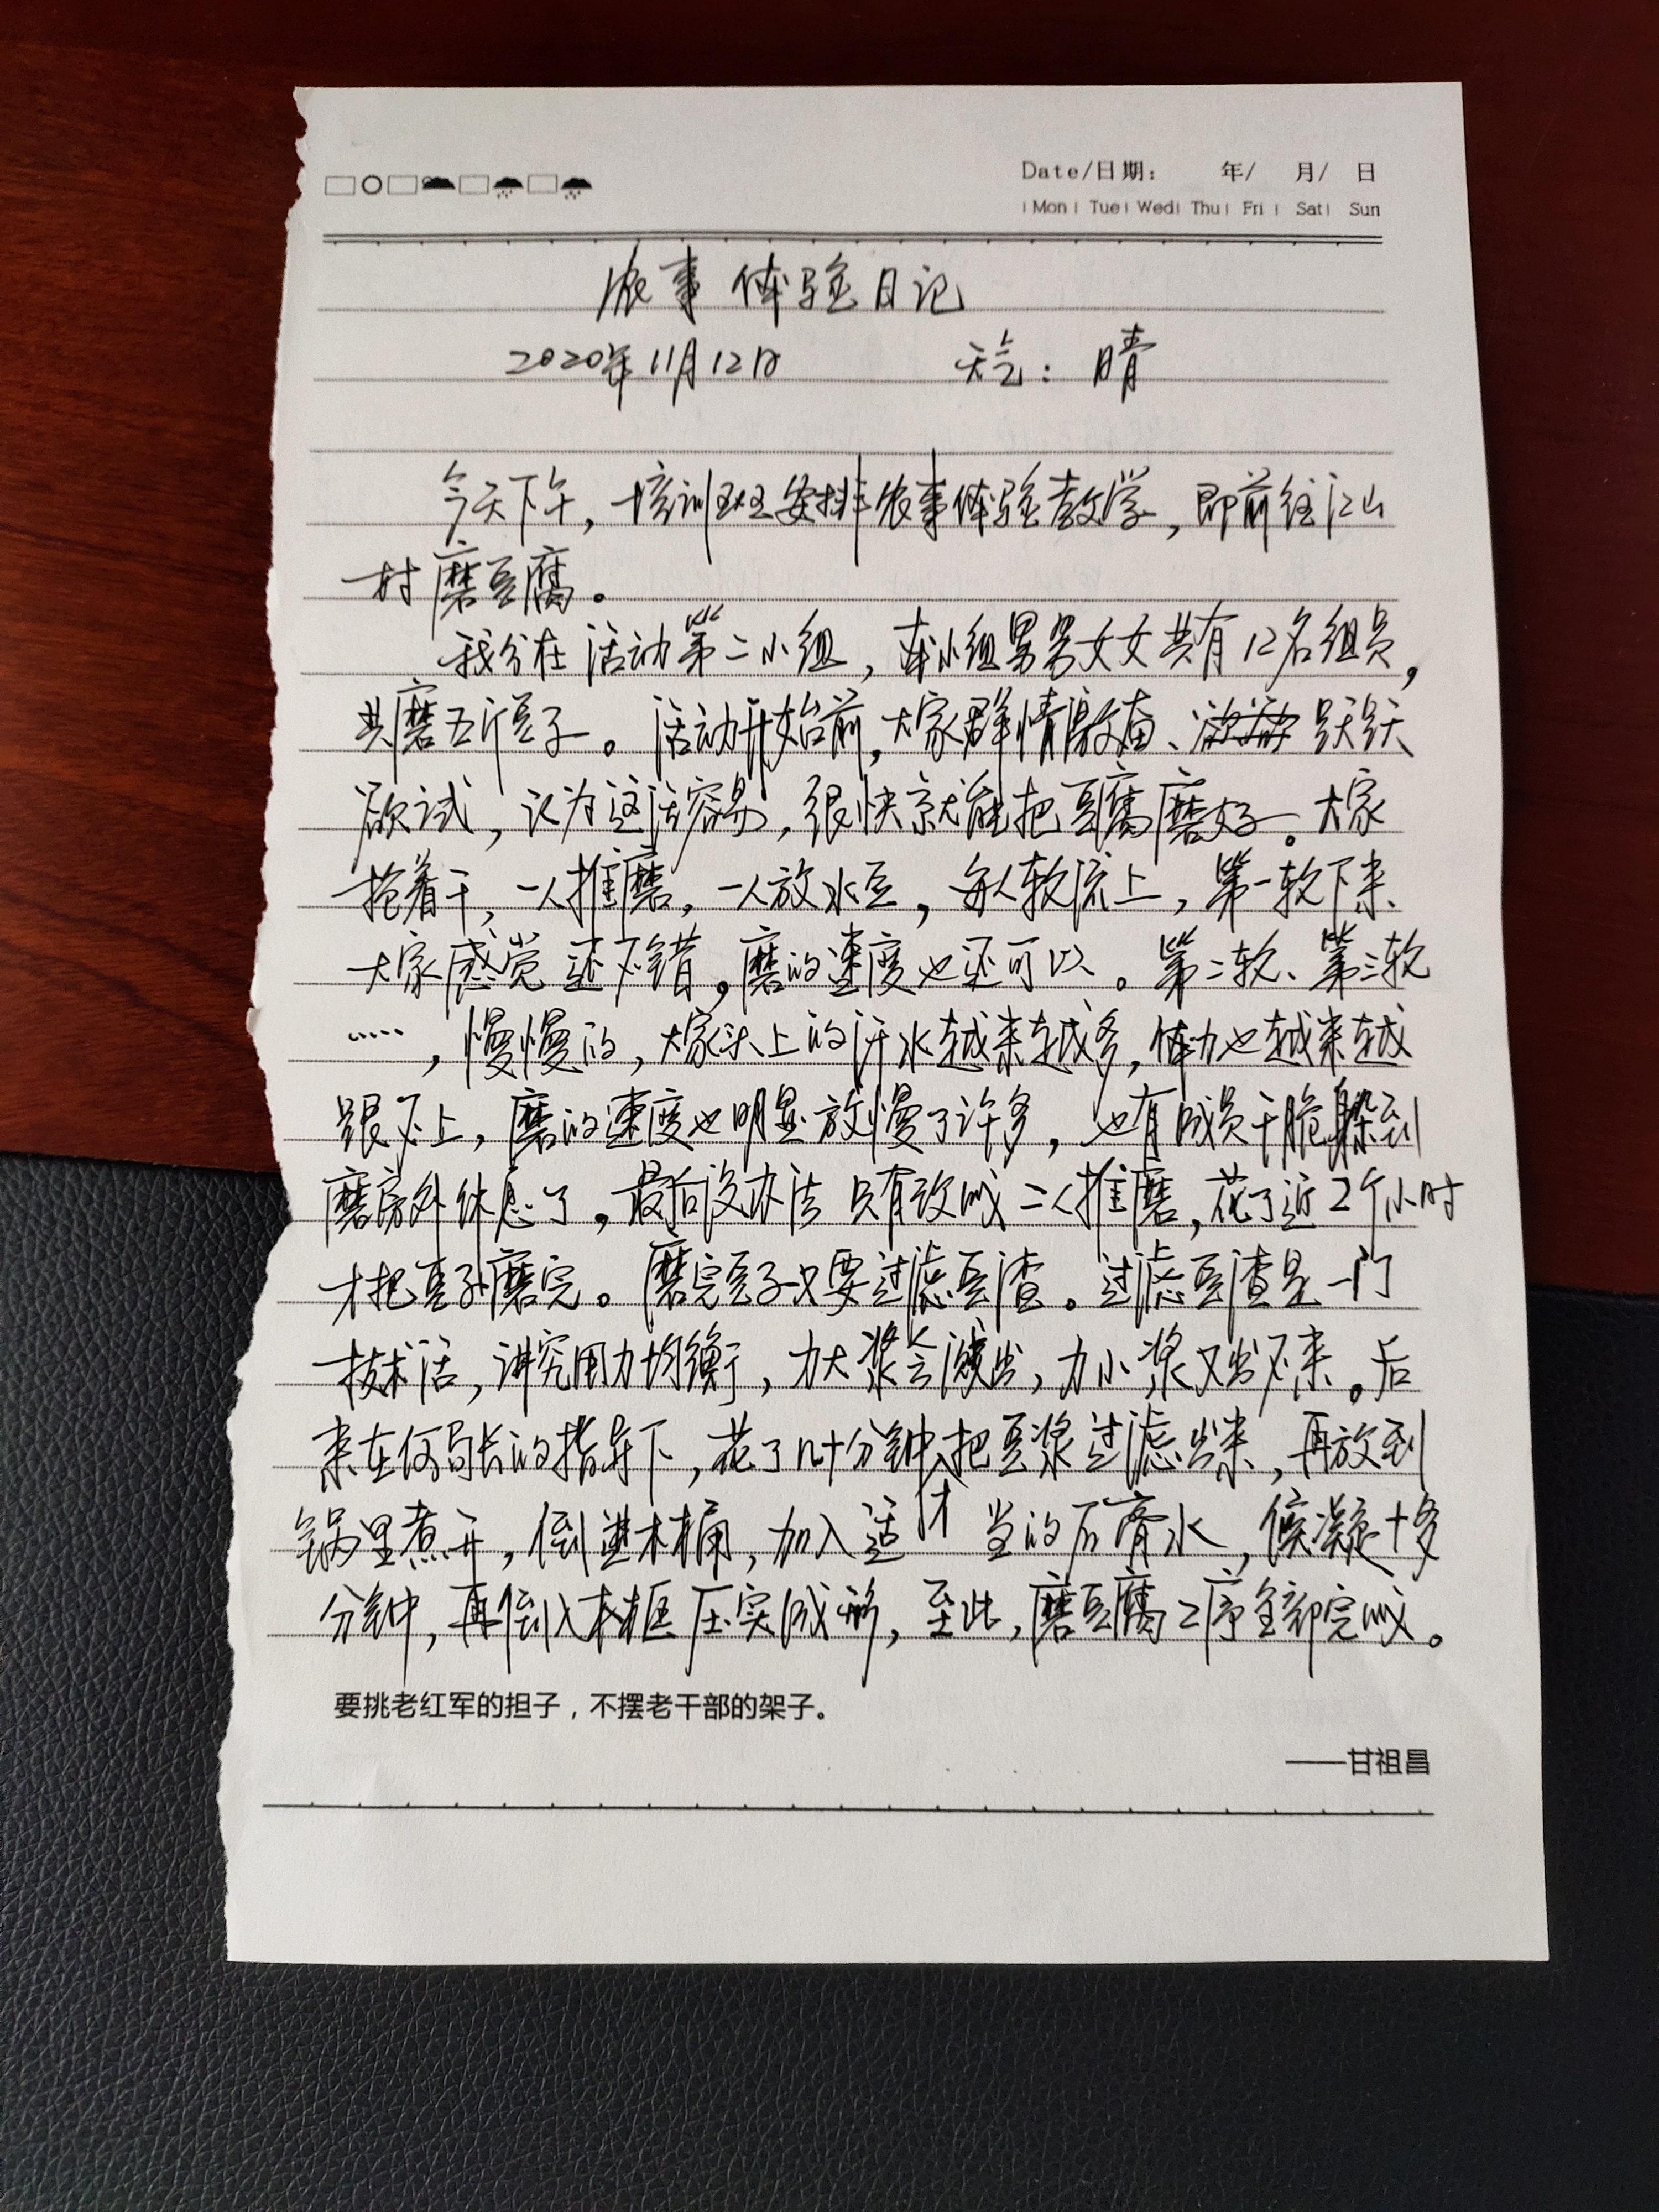 Date/日期： 年/ 月/ 日
Mon Tue Wed Thu Fri Sat Sun
农事体验日记
2020年11月12日 天气：晴
今天下午，培训班安排农事体验教学，即前往江山
村磨豆腐。
我分在活动第二小组，本小组男男女女共有12名组员，
共磨五斤豆子。活动开始前，大家群情激奋、跃跃
欲试，认为这活容易，很快就能把豆腐磨好。大家
抢着干，一人推磨，一人放水豆，每人轮流上，第一轮下来
大家感觉还不错，磨的速度也还可以。第二轮、第三轮
……，慢慢的，大家头上的汗水越来越多，体力也越来越
跟不上，磨的速度也明显放慢了许多，也有成员干脆躲到
磨房外休息了，最后没办法只有改成二人推磨，花了近2个小时
才把豆子磨完。磨完豆子又要过滤豆渣。过滤豆渣是一门
技术活，讲究用力均衡，力大浆会溅出，力小浆又出不来。后
来在何局长的指导下，花了几十分钟才把豆浆过滤出来，再放到
锅里煮开，倒进木桶，加入适当的石膏水，候凝十多
分钟，再倒入木框压实成形，至此，磨豆腐工序全部完成。
要挑老红军的担子，不摆老干部的架子。
——甘祖昌